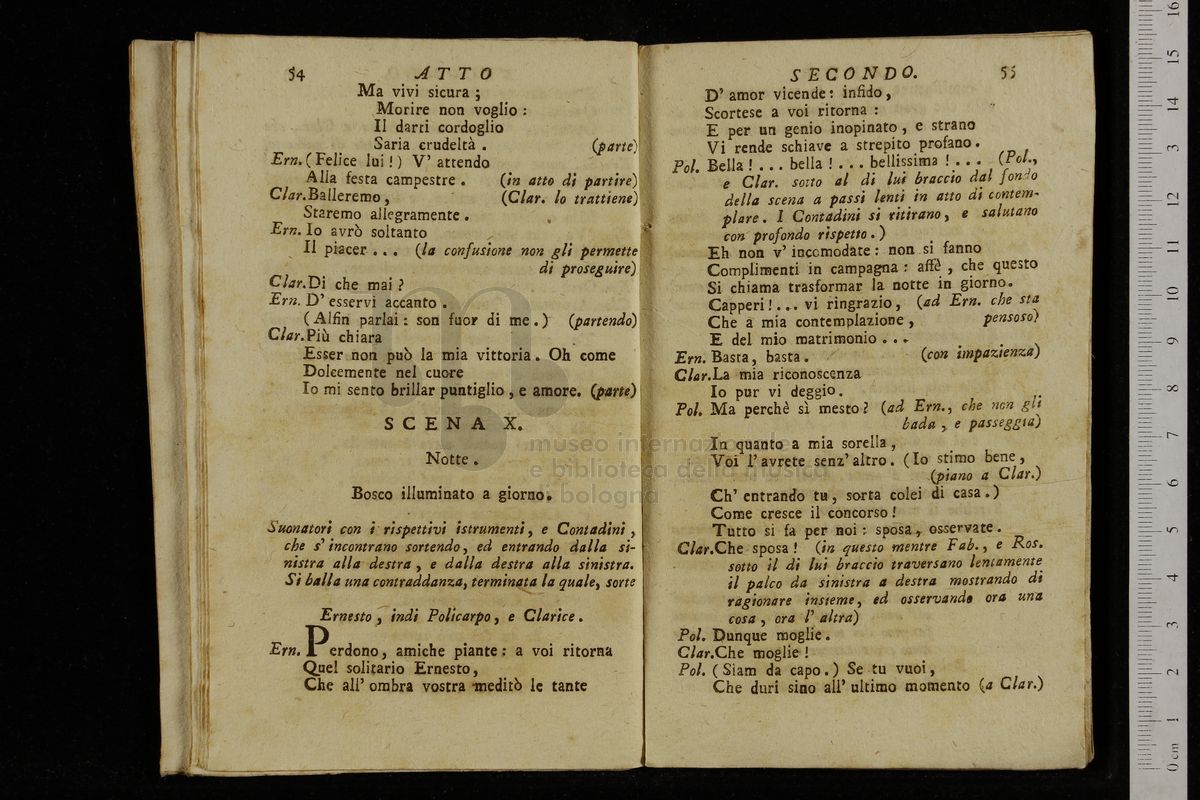 54 ATTO
Ma vivi sicura ;
Morire non voglio :
Il darti cordoglio
Saria crudeltà . (parte)
Ern. ( Felice lui ! ) V' attendo
Alla festa campestre . (in atto di partire)
Clar. Balleremo , (Clar. lo trattiene)
Staremo allegramente .
Ern. Io avrò soltanto
Il piacer . . . (la confusione non gli permette
di proseguire)
Clar. Di che mai ?
Ern. D' esservi accanto .
( Alfin parlai : son fuor di me . ) (partendo)
Clar. Più chiara
Esser non può la mia vittoria . Oh come
Dolcemente nel cuore
Io mi sento brillar puntiglio , e amore. (parte)
SCENA X.
Notte .
Bosco illuminato a giorno.
Suonatori con i rispettivi istrumenti , e Contadini ,
che s' incontrano sortendo, ed entrando dalla si-
nistra alla destra , e dalla destra alla sinistra.
Si balla una contraddanza, terminata la quale, sorte
Ernesto , indi Policarpo, e Clarice .
Ern. Perdono, amiche piante : a voi ritorna
Quel solitario Ernesto,
Che all' ombra vostra meditò le tante
SECONDO. 55
D' amor vicende : infido ,
Scortese a voi ritorna :
E per un genio inopinato , e strano
Vi rende schiave a strepito profano .
Pol. Bella ! . . . bella ! . . . bellissima ! . . . (Pol.,
e Clar. sotto al di lui braccio dal fondo
della scena a passi lenti in atto di contem-
plare . I Contadini si ritirano , e salutano
con profondo rispetto . )
Eh non v' incomodate : non si fanno
Complimenti in campagna : affè , che questo
Si chiama trasformar la notte in giorno.
Capperi ! . . . vi ringrazio , (ad Ern. che sta
Che a mia contemplazione , pensoso)
E del mio matrimonio . . .
Ern. Basta, basta . (con impazienza)
Clar. La mia riconoscenza
Io pur vi deggio .
Pol. Ma perchè sì mesto ? (ad Ern., che non gli
bada , e passeggia)
In quanto a mia sorella ,
Voi l' avrete senz' altro . ( Io stimo bene ,
(piano a Clar.)
Ch' entrando tu , sorta colei di casa . )
Come cresce il concorso !
Tutto si fa per noi : sposa , osservate .
Clar. Che sposa ! (in questo mentre Fab. , e Ros.
sotto il di lui braccio traversano lentamente
il palco da sinistra a destra mostrando di
ragionare insieme, ed osservando ora una
cosa , ora l' altra)
Pol. Dunque moglie .
Clar. Che moglie !
Pol. ( Siam da capo . ) Se tu vuoi ,
Che duri sino all' ultimo momento (a Clar.)
museo internazionale
e biblioteca della musica
di bologna
0 cm 1 2 3 4 5 6 7 8 9 10 11 12 13 14 15 16